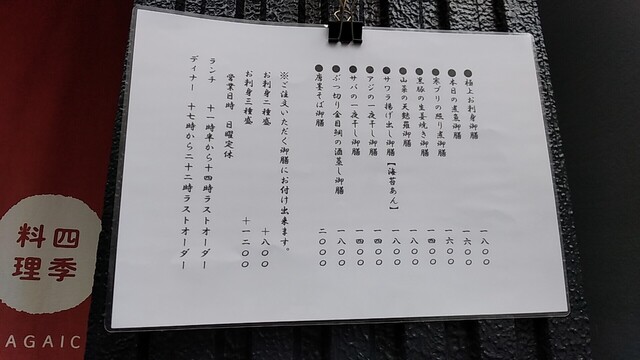 ●極上お刺身御膳 一八〇〇
●本日の煮魚御膳 一六〇〇
●寒ブリの照り煮御膳 一六〇〇
●黒豚の生姜焼き御膳 一四〇〇
●山菜の天麩羅御膳 一八〇〇
●サワラ揚げ出し御膳【海苔あん】 一八〇〇
●アジの一夜干し御膳 一四〇〇
●サバの一夜干し御膳 一四〇〇
●ぶつ切り金目鯛の酒蒸し御膳 一八〇〇
●唐墨そば御膳 二〇〇〇
※ご注文いただく御膳にお付け出来ます。
お刺身二種盛 +八〇〇
お刺身三種盛 +一二〇〇
営業日時 日曜定休
ランチ 十一時半から十四時ラストオーダー
ディナー 十七時から二十二時ラストオーダー
四季
料理
AGAIC